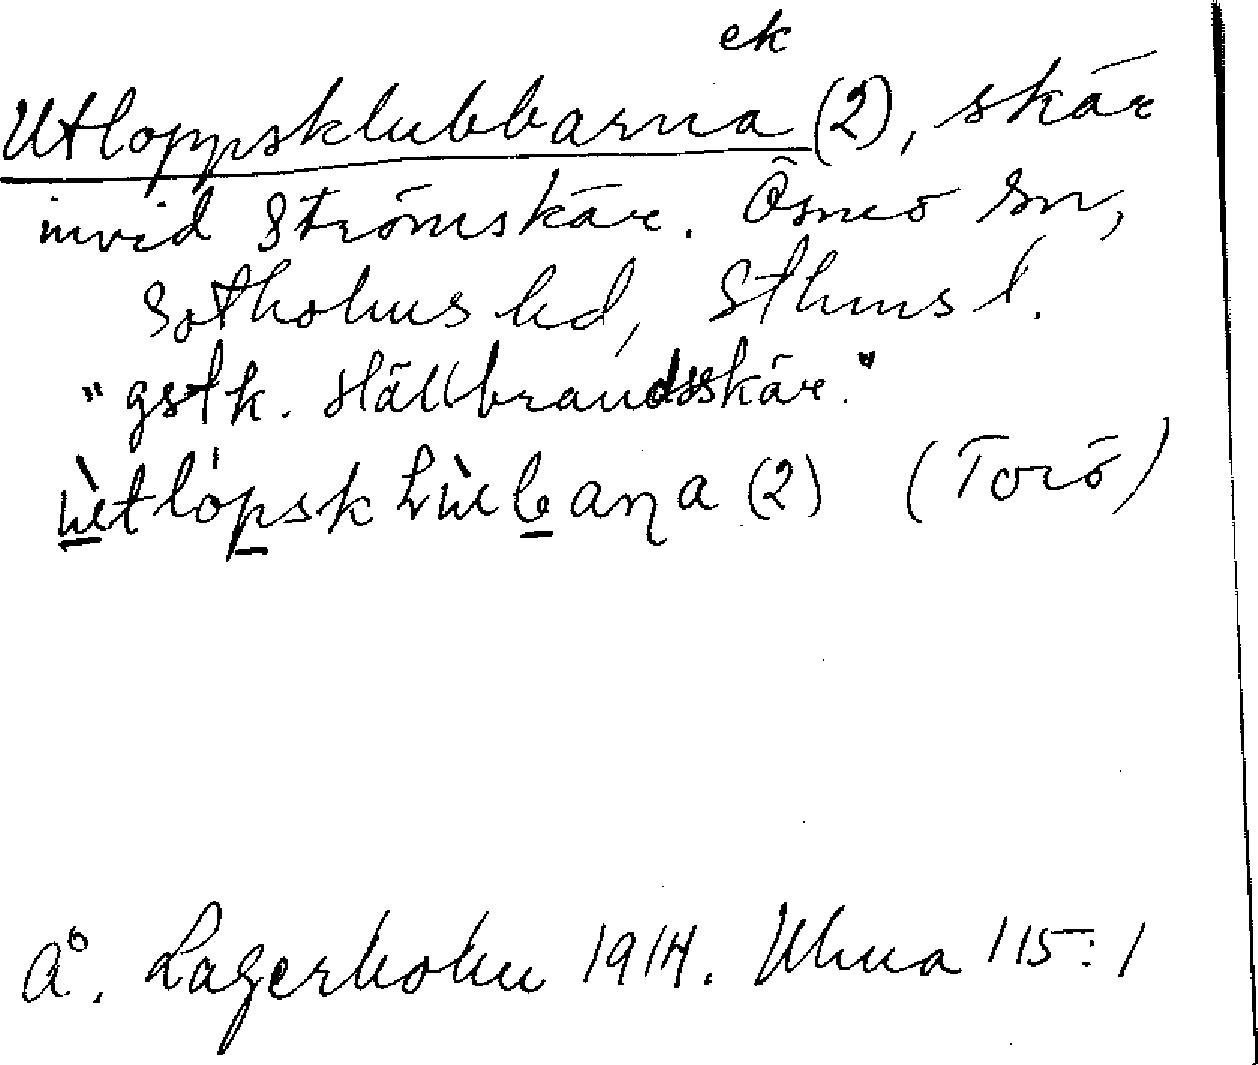 ek
Utloppsklubbarna (2), skär
invid Strömskär. Ösmo sn,
Sotholms hd, Sthms l.
"gstk. Hällbrandsskär."
ùtlópsklùbaṇa (2) (Torö)
Å. Lagerholm 1914. Ulma 115:1